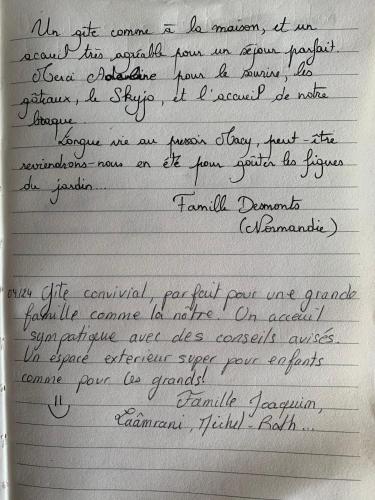 Un gîte comme à la maison, et un
acueil très agréable pour un séjour parfait.
Merci Adeline pour le sourire, les
gâteaux, le Skyjo, et l'accueil de notre
braque.
Longue vie au pressoir Macy, peut-être
reviendrons-nous en été pour goûter les figues
du jardin...
Famille Desmonts
(Normandie)
04/24 Gîte convivial, parfait pour une grande
famille comme la nôtre. Un acceuil
sympatique avec des conseils avisés.
Un espace exterieur super pour enfants
comme pour les grands!
Famille Joaquim,
Laâmrani, Michel-Roth...